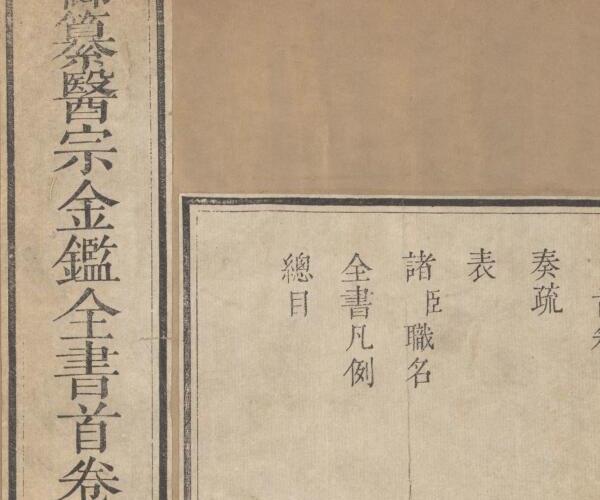 奏疏
表
諸臣職名
全書凡例
總目
纂醫宗金鑑全書首卷